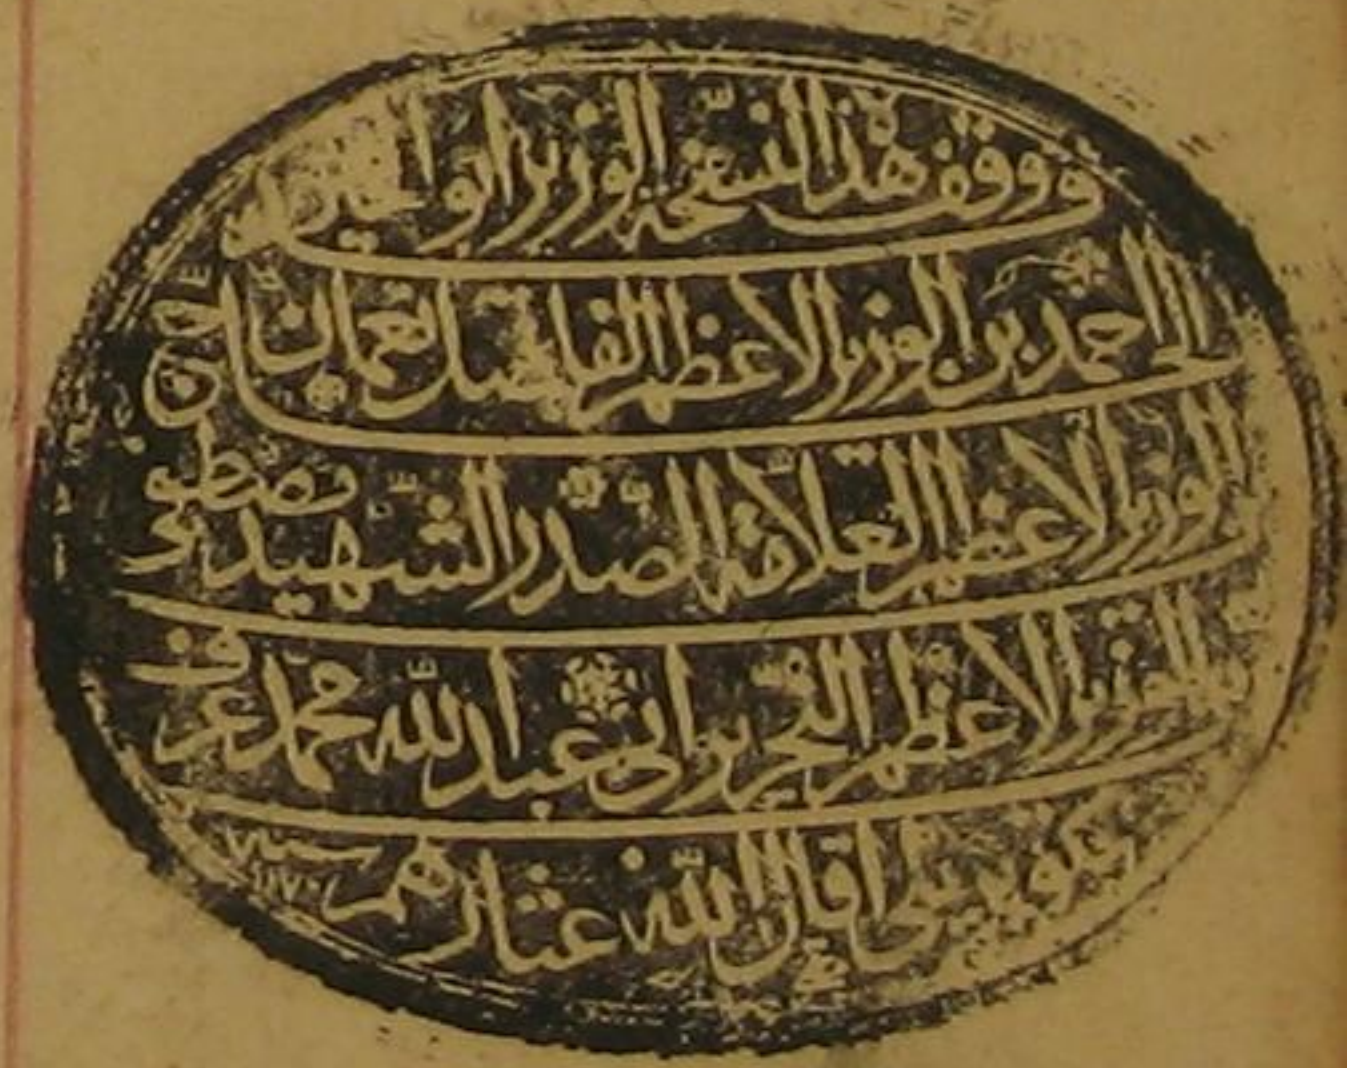 قد وقف هذا النسخة الوزير ابو الخير
الحاج احمد بن الوزير الاعظم الفاضل نعمان بن
الوزير الاعظم العلامة الصدر الشهيد مصطفى
الوزير الاعظم النحرير ابي عبد الله محمد عرف
بكوپريلى اقال الله عثارهم سنه ١١٧٠